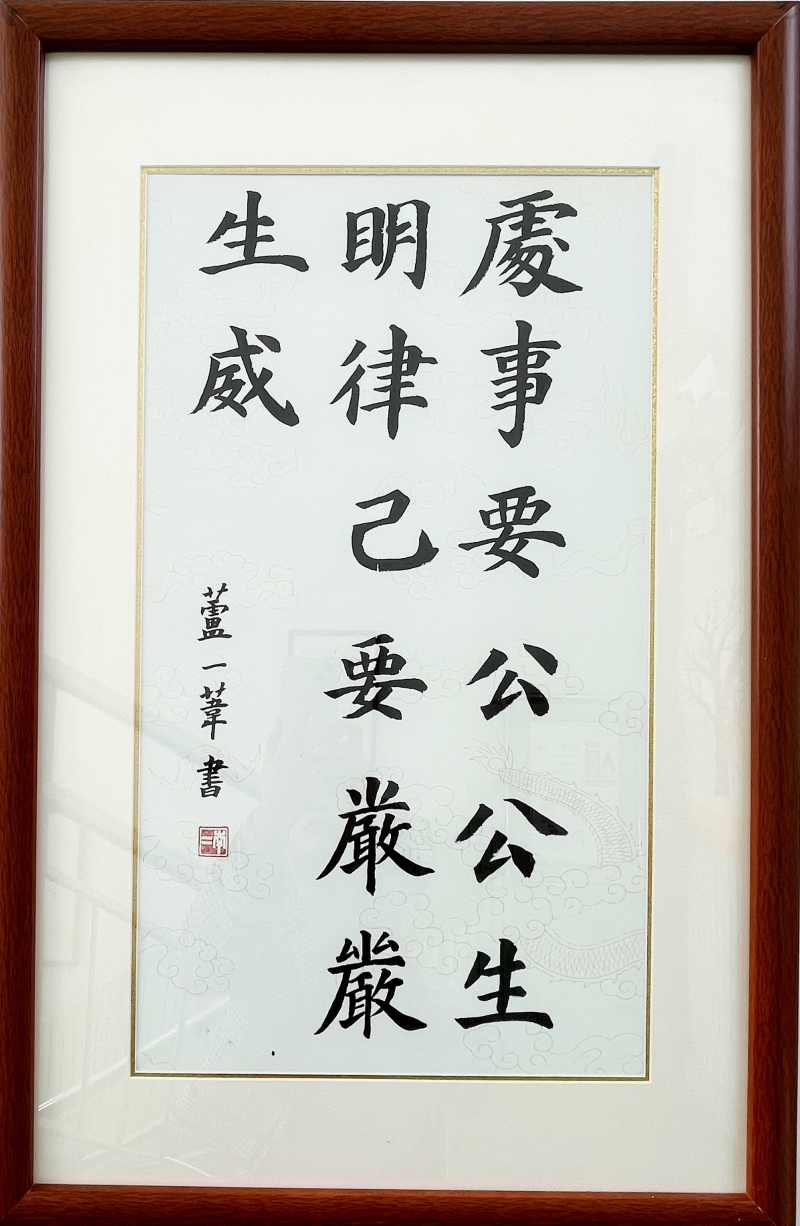 處事要公公生
明律己要厳嚴
生威
蘆一葦書